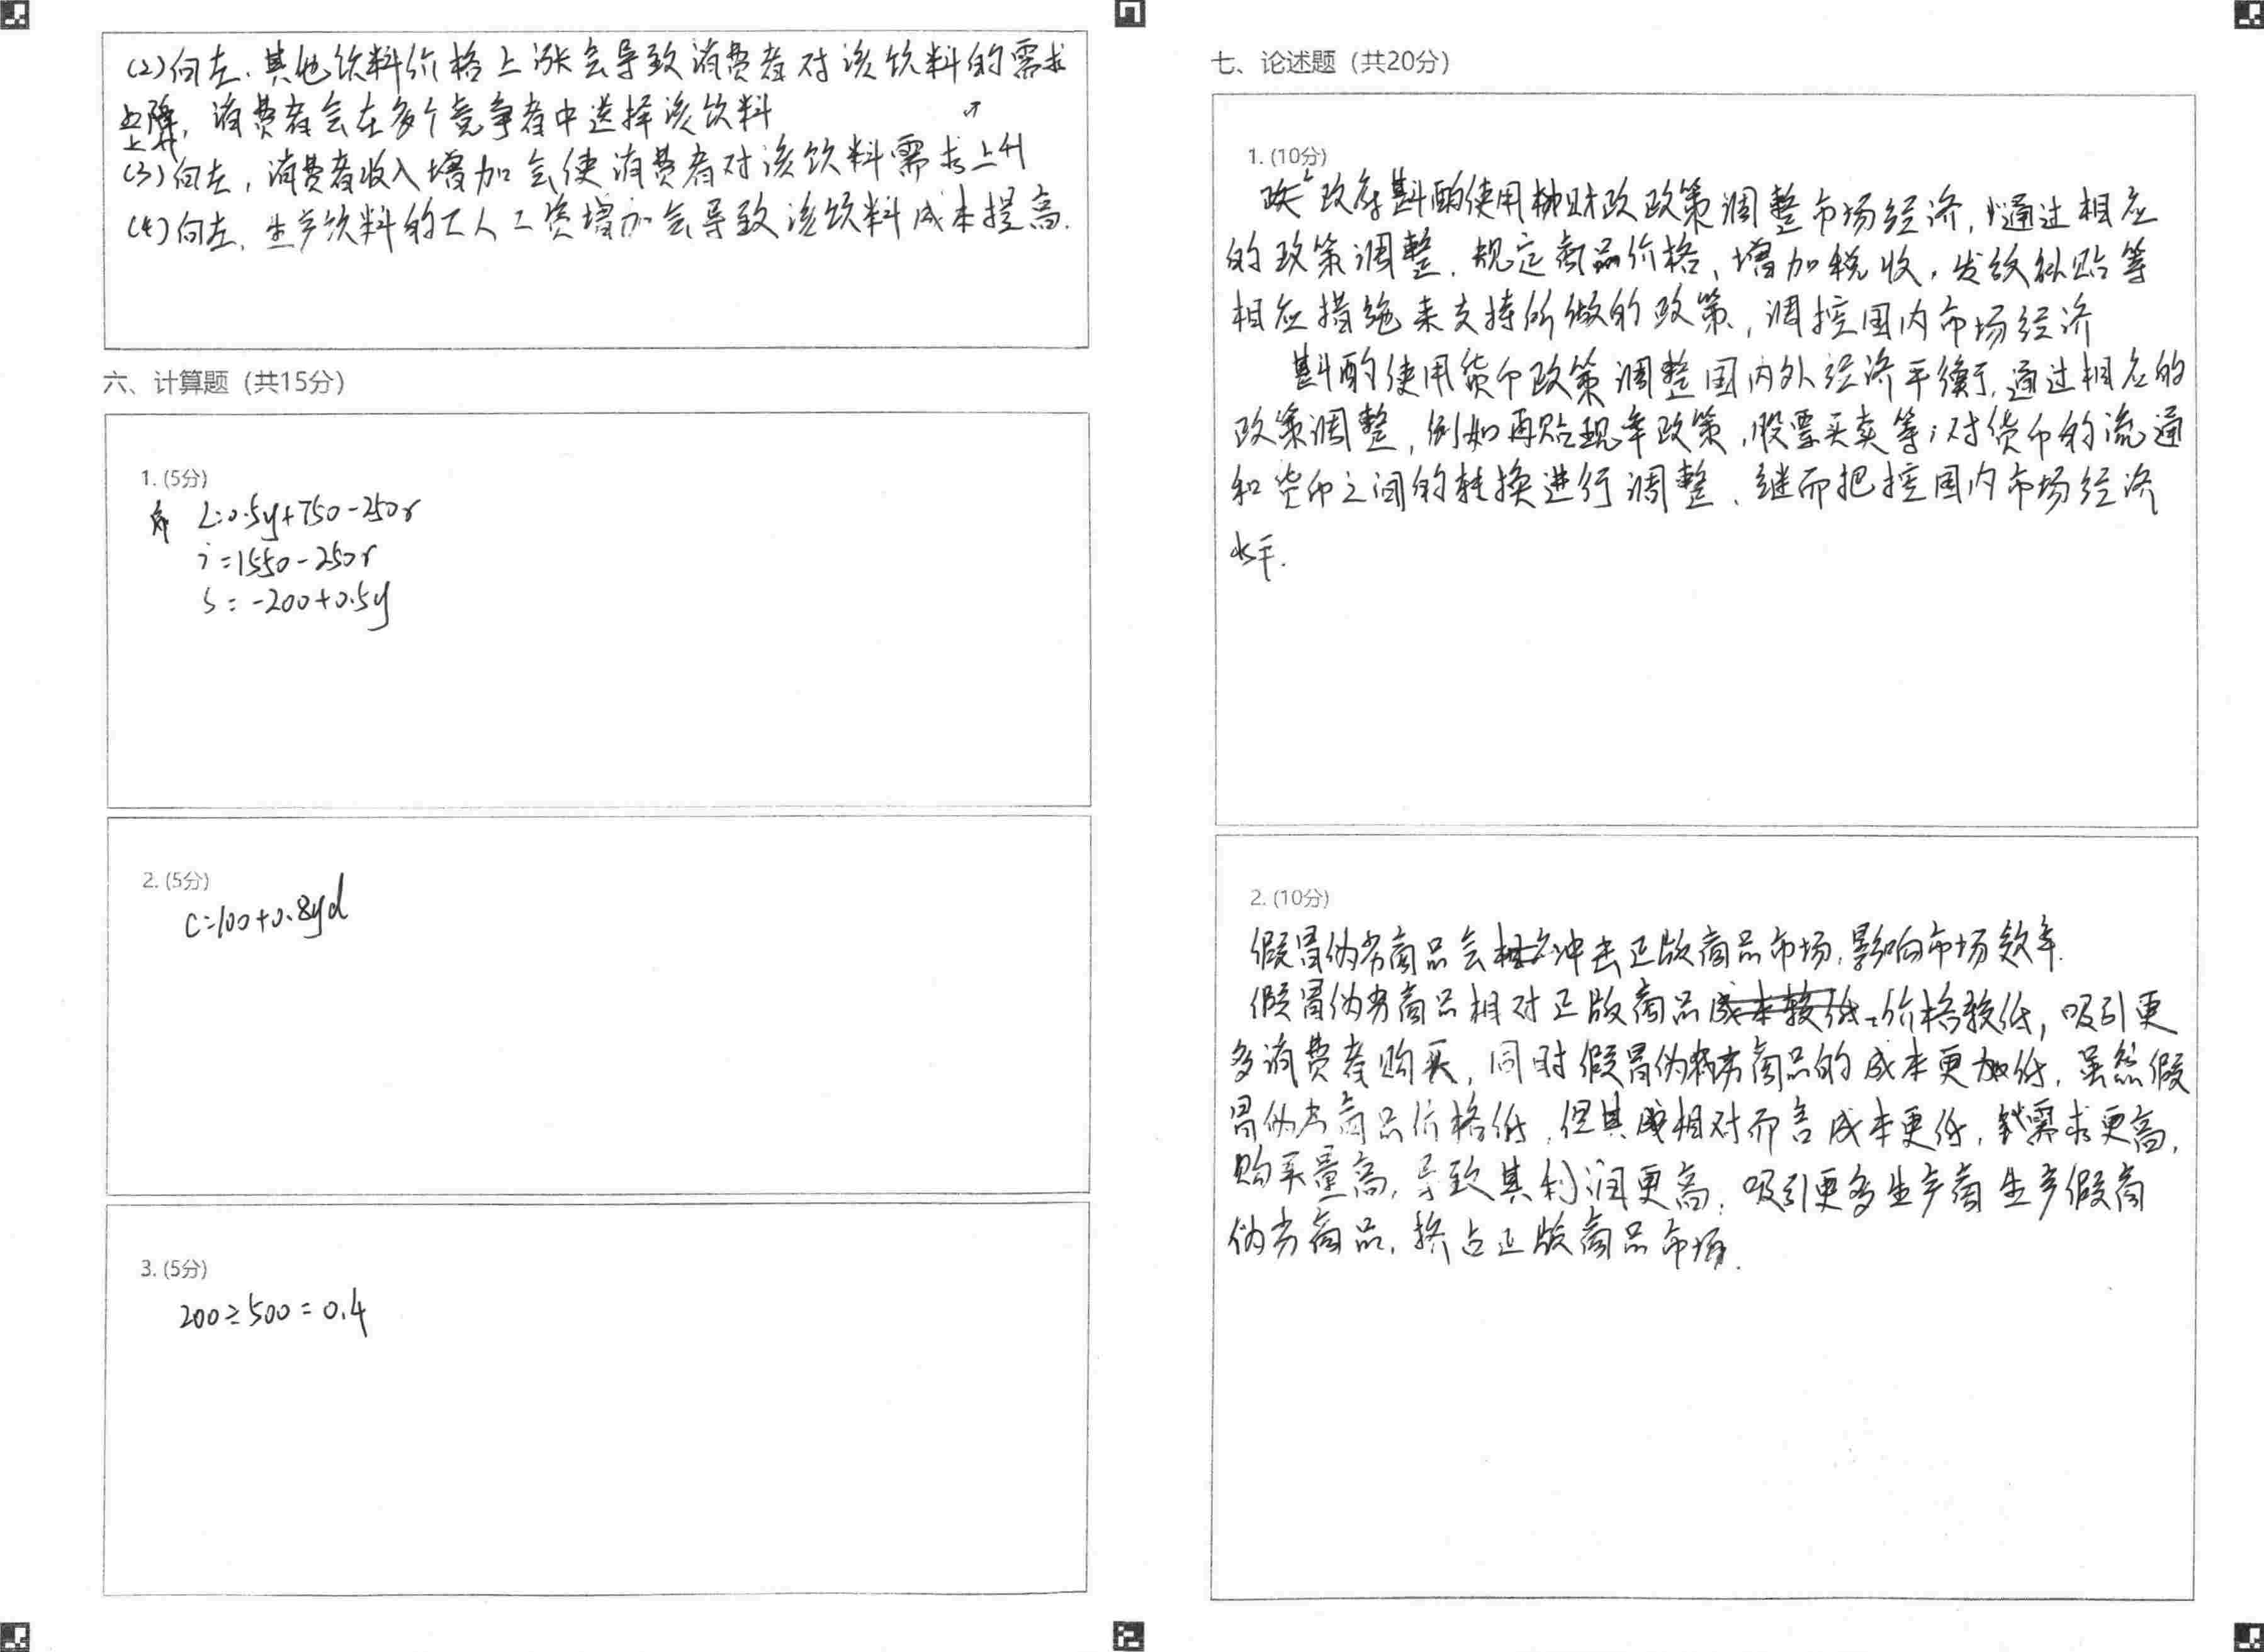 (2)向左.其他饮料价格上涨会导致消费者对该饮料的需求
上升,消费者会在多个竞争者中选择该饮料
(3)向左,消费者收入增加会使消费者对该饮料需求上升
(4)向左.生产饮料的工人工资增加会导致该饮料成本提高.
六、计算题(共15分)
1.(5分)
L=0.5y+750-250r
i=1550-250r
s=-200+0.5y
2.(5分)
C=100+0.8yd
3.(5分)
200÷500=0.4
七、论述题(共20分)
1.(10分)
政府斟酌使用财政政策调整市场经济,通过相应
的政策调整.规定商品价格、增加税收,发放补贴等
相应措施来支持所做的政策,调控国内市场经济
斟酌使用货币政策调整国内外经济平衡,通过相应的
政策调整,例如再贴现率政策,股票买卖等;对货币的流通
和货币之间的转换进行调整、继而把控国内市场经济
水平.
2.(10分)
假冒伪劣商品会冲击正版商品市场,影响市场效率.
假冒伪劣商品相对正版商品价格较低,吸引更
多消费者购买,同时假冒伪劣商品的成本更加低,虽然假
冒伪劣商品价格低,但其相对而言成本更低,需求更高,
购买量高,导致其利润更高,吸引更多生产商生产假商
伪劣商品,挤占正版商品市场.